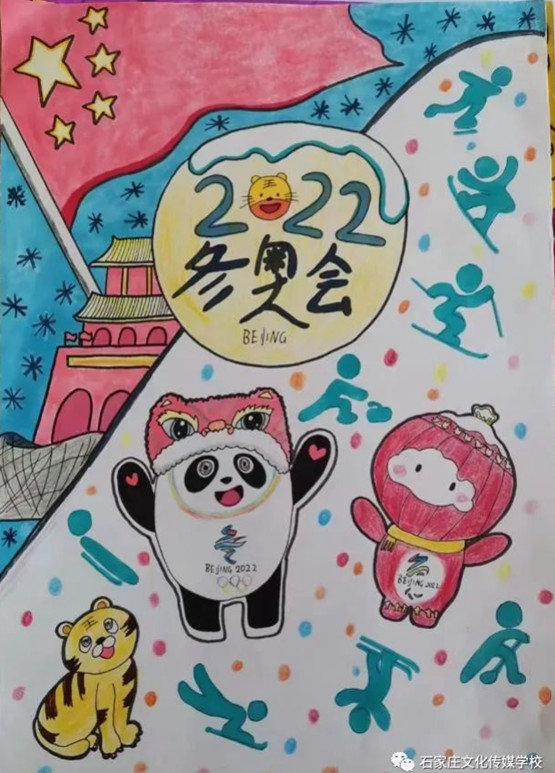 2022
冬奥会
BEIJING
BEIJING 2022
BEIJING 2022
王
王
石家庄文化传媒学校